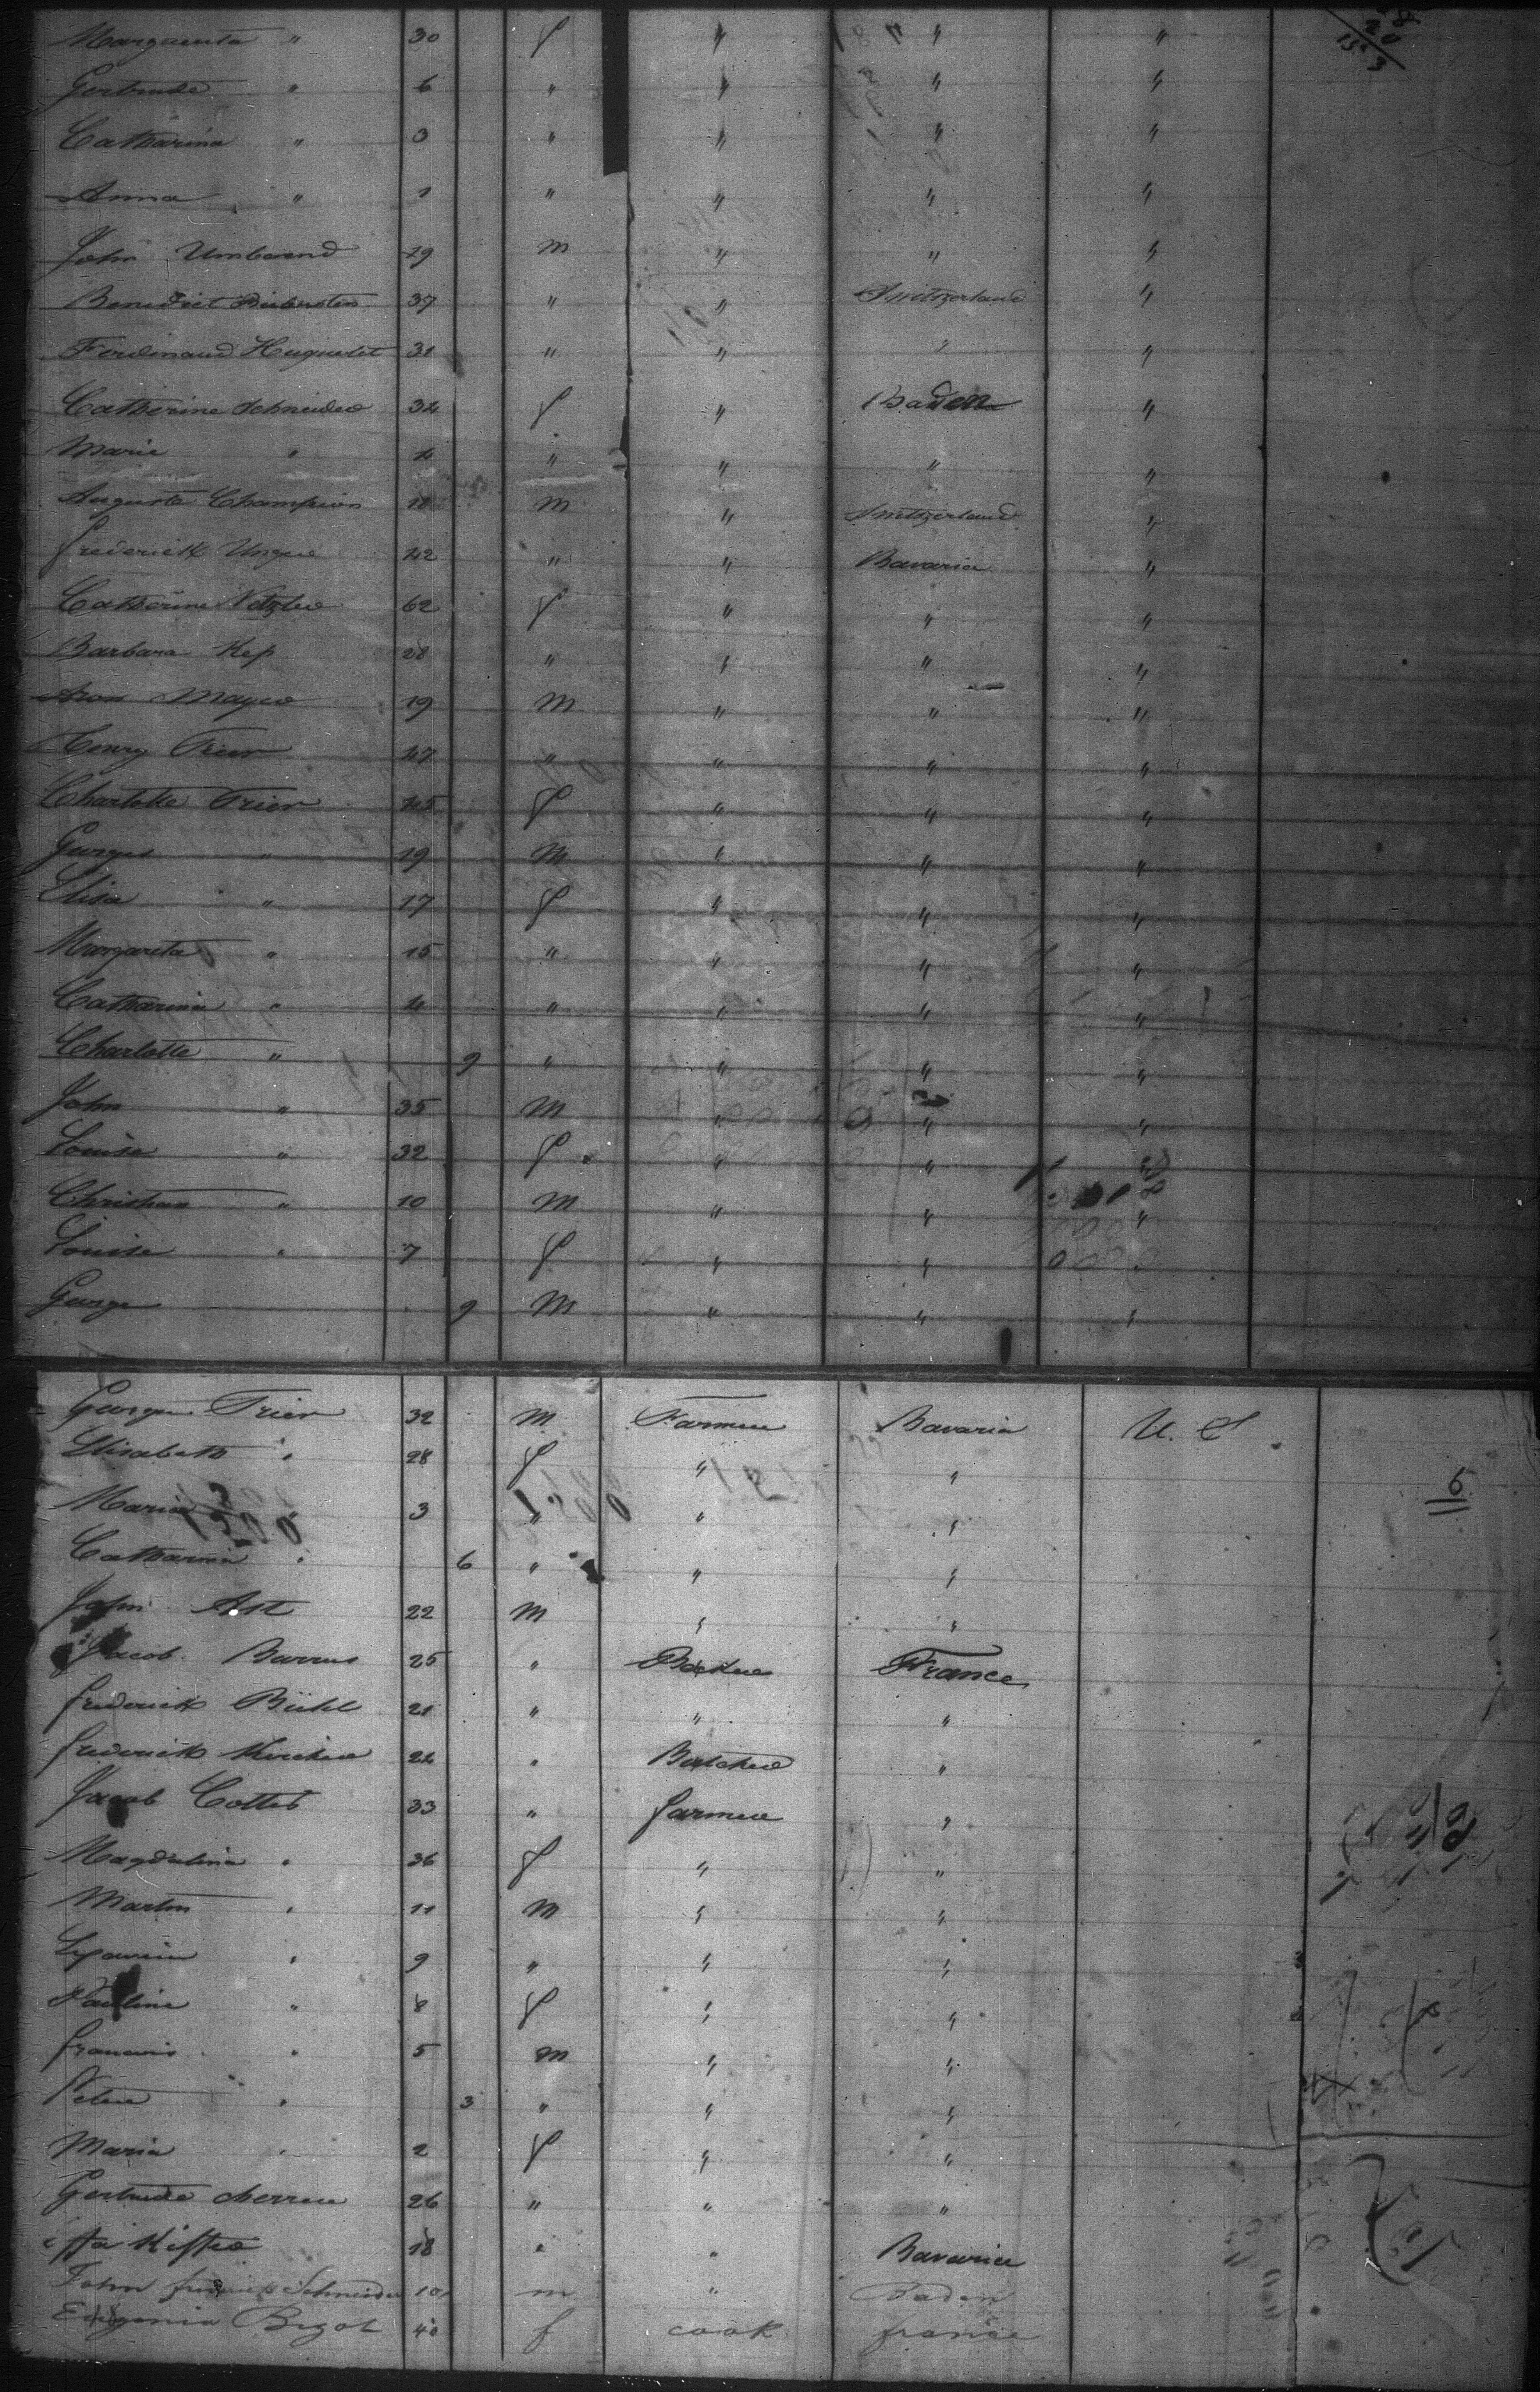 Marguerita " 30 f " " "
Gertrude " 6 " " " "
Catharina " 3 " " " "
Anna " 1 " " " "
John Umberend 29 m " " "
Benedict 37 " " Switzerland "
Ferdinand Huguelet 31 " " " "
Catherine Schneider 32 f " Baden "
Marie " 4 " " " "
Auguste Champion 18 m " Switzerland "
Frederick Unger 42 " " Bavaria "
Catherine 62 f " " "
Barbara Kep 28 " " " "
Aron Mayer 19 m " " "
Henry Trier 47 " " " "
Charlotte Trier 45 f " " "
George " 19 m " " "
Elisa " 17 f " " "
Margareta " 15 " " " "
Catharina " 4 " " " "
Charlotte " 9 " " " "
John " 35 m " " "
Louise " 32 f " " "
Christian " 10 m " " "
Louise " 7 f " " "
George 9 m " " "
George Trier 32 m Farmer Bavaria U. S
Elisabeth " 28 f " "
Maria 3 " " "
Catharina " 6 " " "
John Ast 22 m " "
Jacob Burrus 25 " Baker France
Frederick Bühl 21 " " "
Frederick Kircher 22 " Butcher "
Jacob Cotteb 33 " farmer "
Magdalina " 36 f " "
Martin " 11 m " "
" 9 " " "
Pauline " 8 f " "
Francois " 5 m " "
Peter " 3 " " "
Maria " 2 f " "
Gertrude 26 " " "
18 " " Bavaria
John frederick Schneider 10 m " Baden
Bizot 40 f cook france